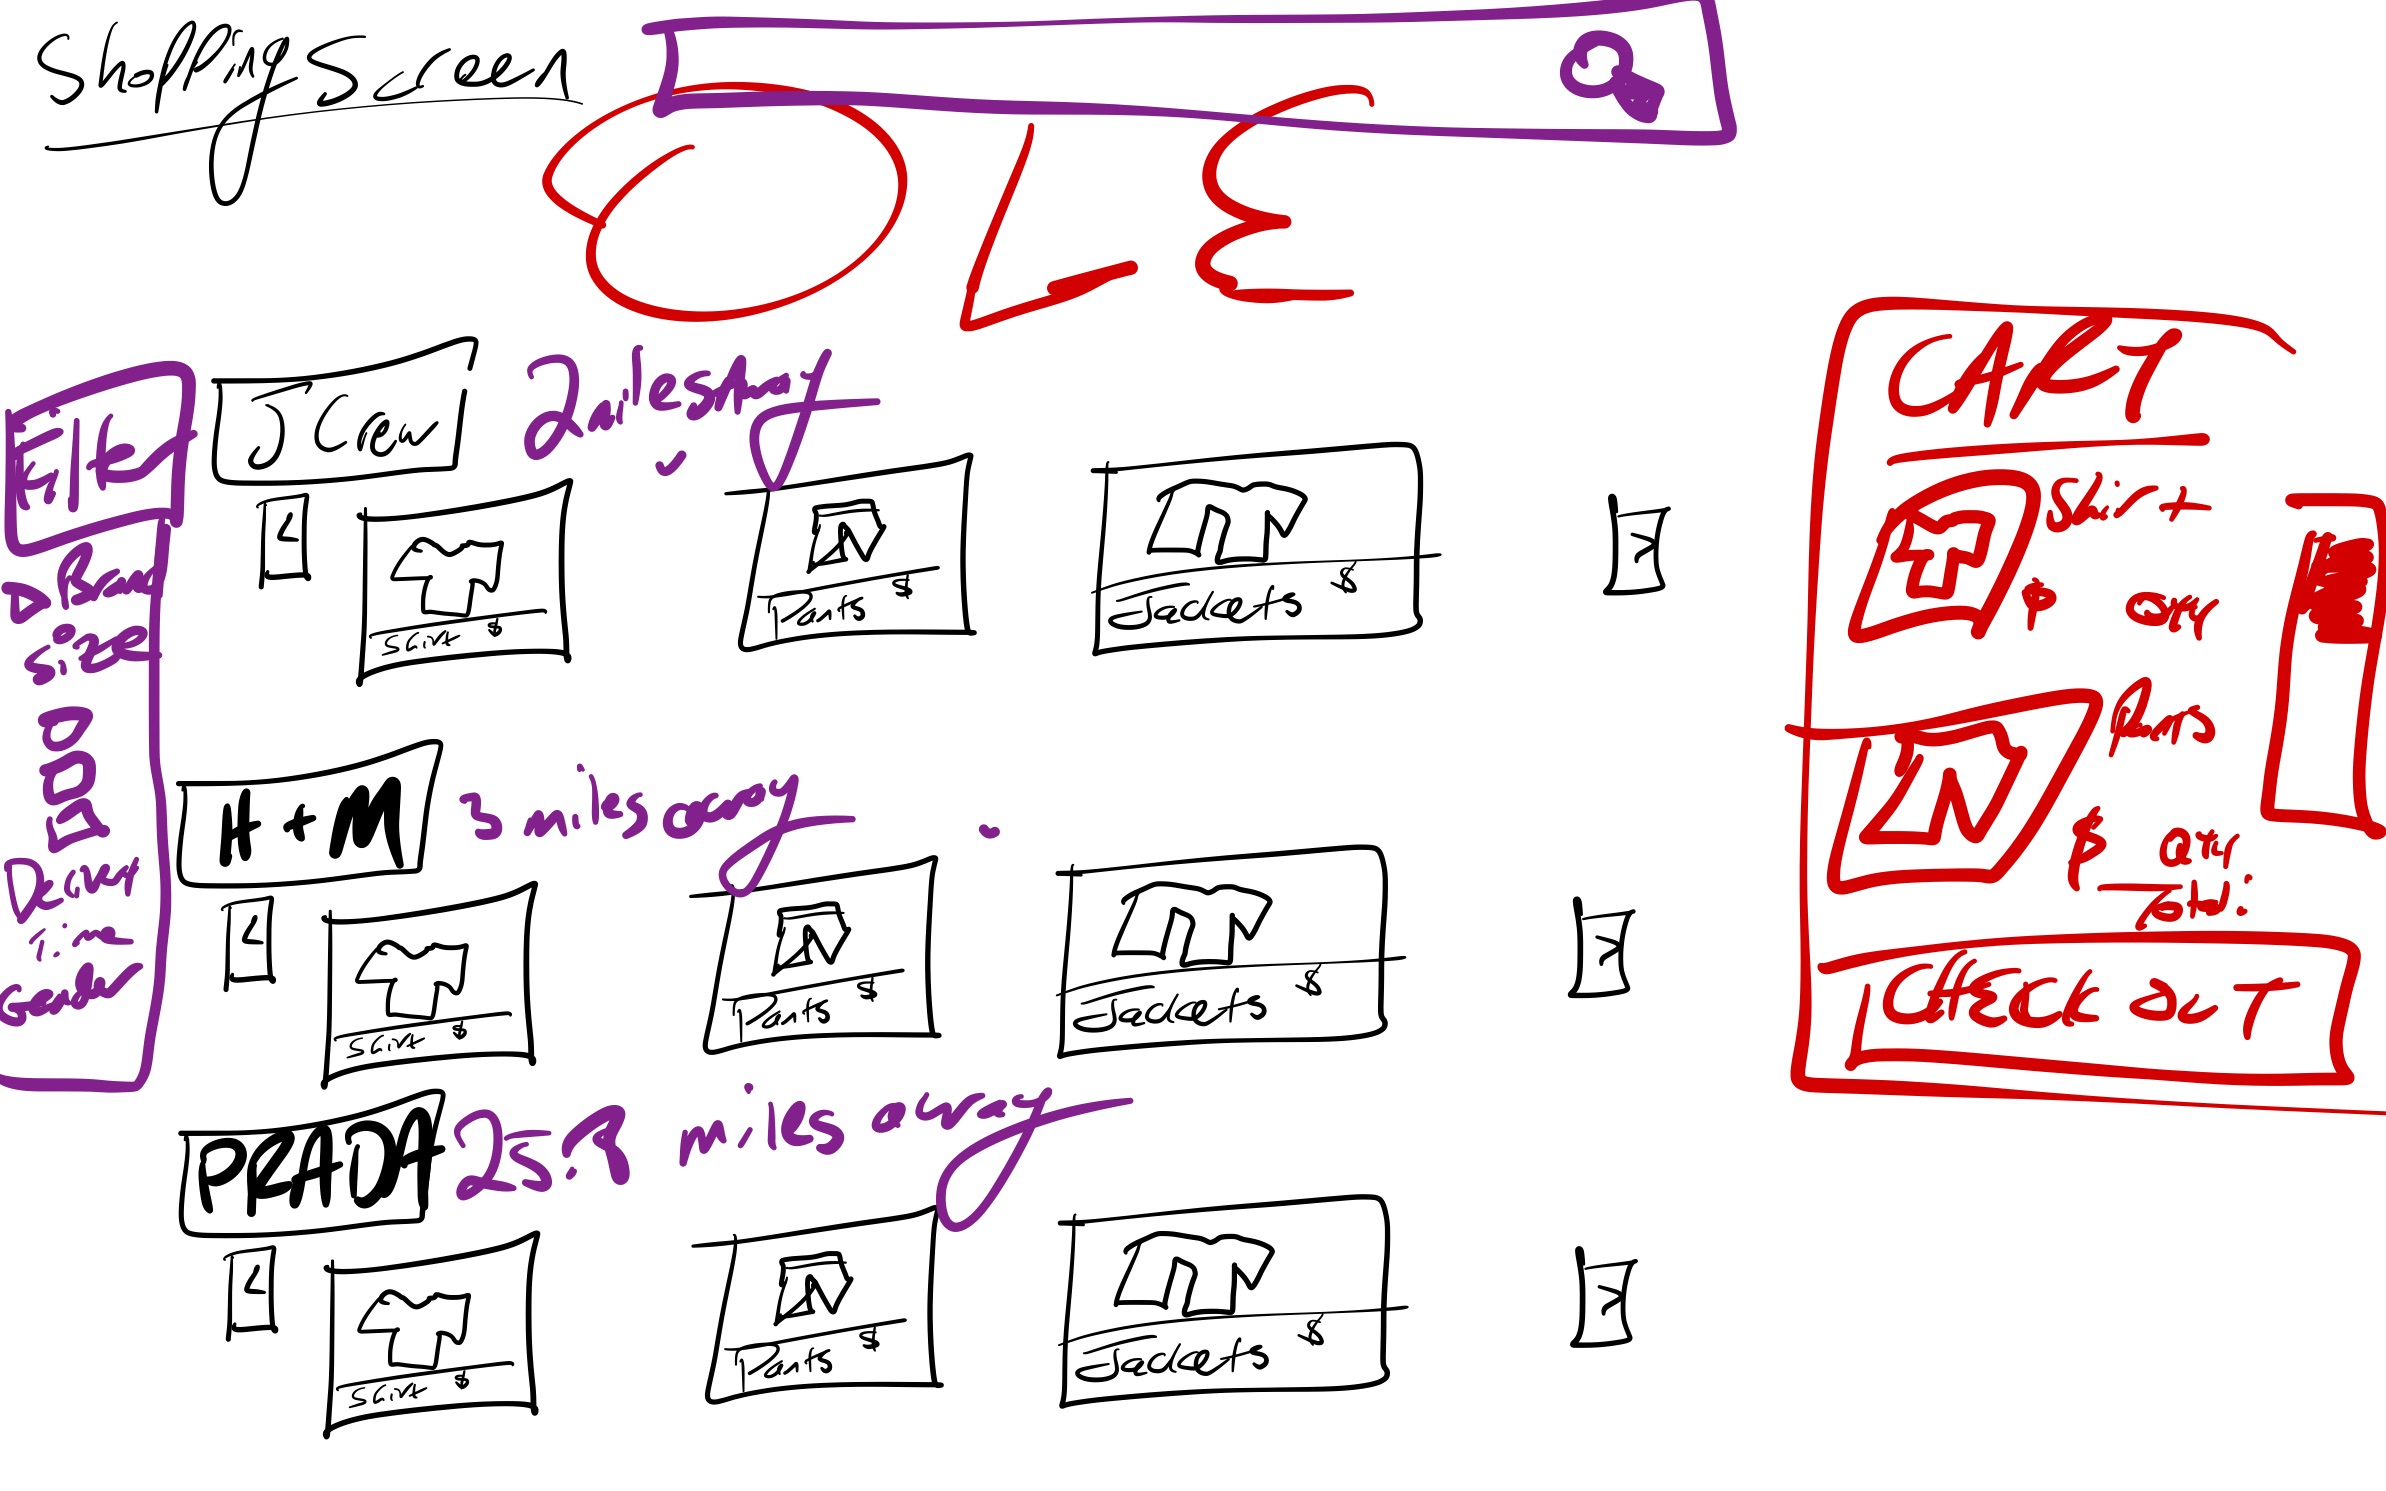 Shopping Screen
OLE
Filter
Brand
size
Delivery
time
Gender
J Crew
2 miles away
<
shirt $
Pants $
Jackets $
>
H+M
3 miles away
<
shirt $
Pants $
Jackets $
>
PRADA
25.8 miles away
<
shirt $
Pants $
Jackets $
>
CART
Shirt
$ QTY
Pants
$ QTY
Total:
CHECK OUT